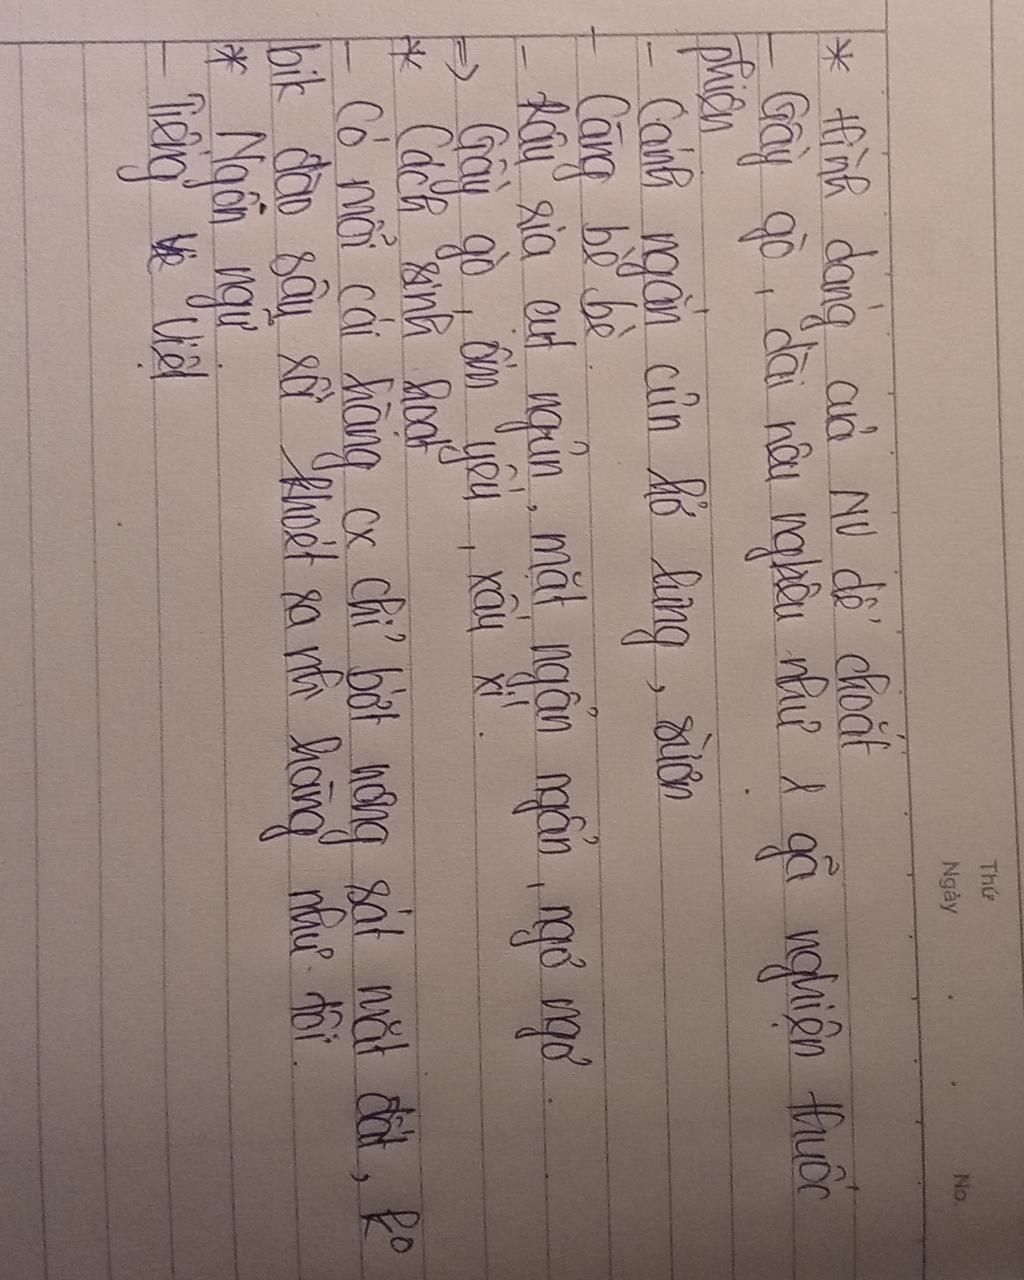 Thứ
Ngày . . No.
* Hình dáng củả NV dế choắt
- Gầy gò, dài nêu nghêu như 1 gã nghiện thuốc
phiện
- Cánh ngắn củn hở lưng, sườn
- Càng bè bè.
- Râu ria cụt ngủn, mặt ngẩn ngẩn, ngơ ngơ.
=> Gầy gò, ốm yếu, xấu xí.
* Cách sinh hoạt
- Có mỗi cái hang cx chỉ bớt nông sát mặt đất, ko
bik đào sâu rồi khoét ra nh hang như tôi.
* Ngôn ngữ
- Tiếng Việt